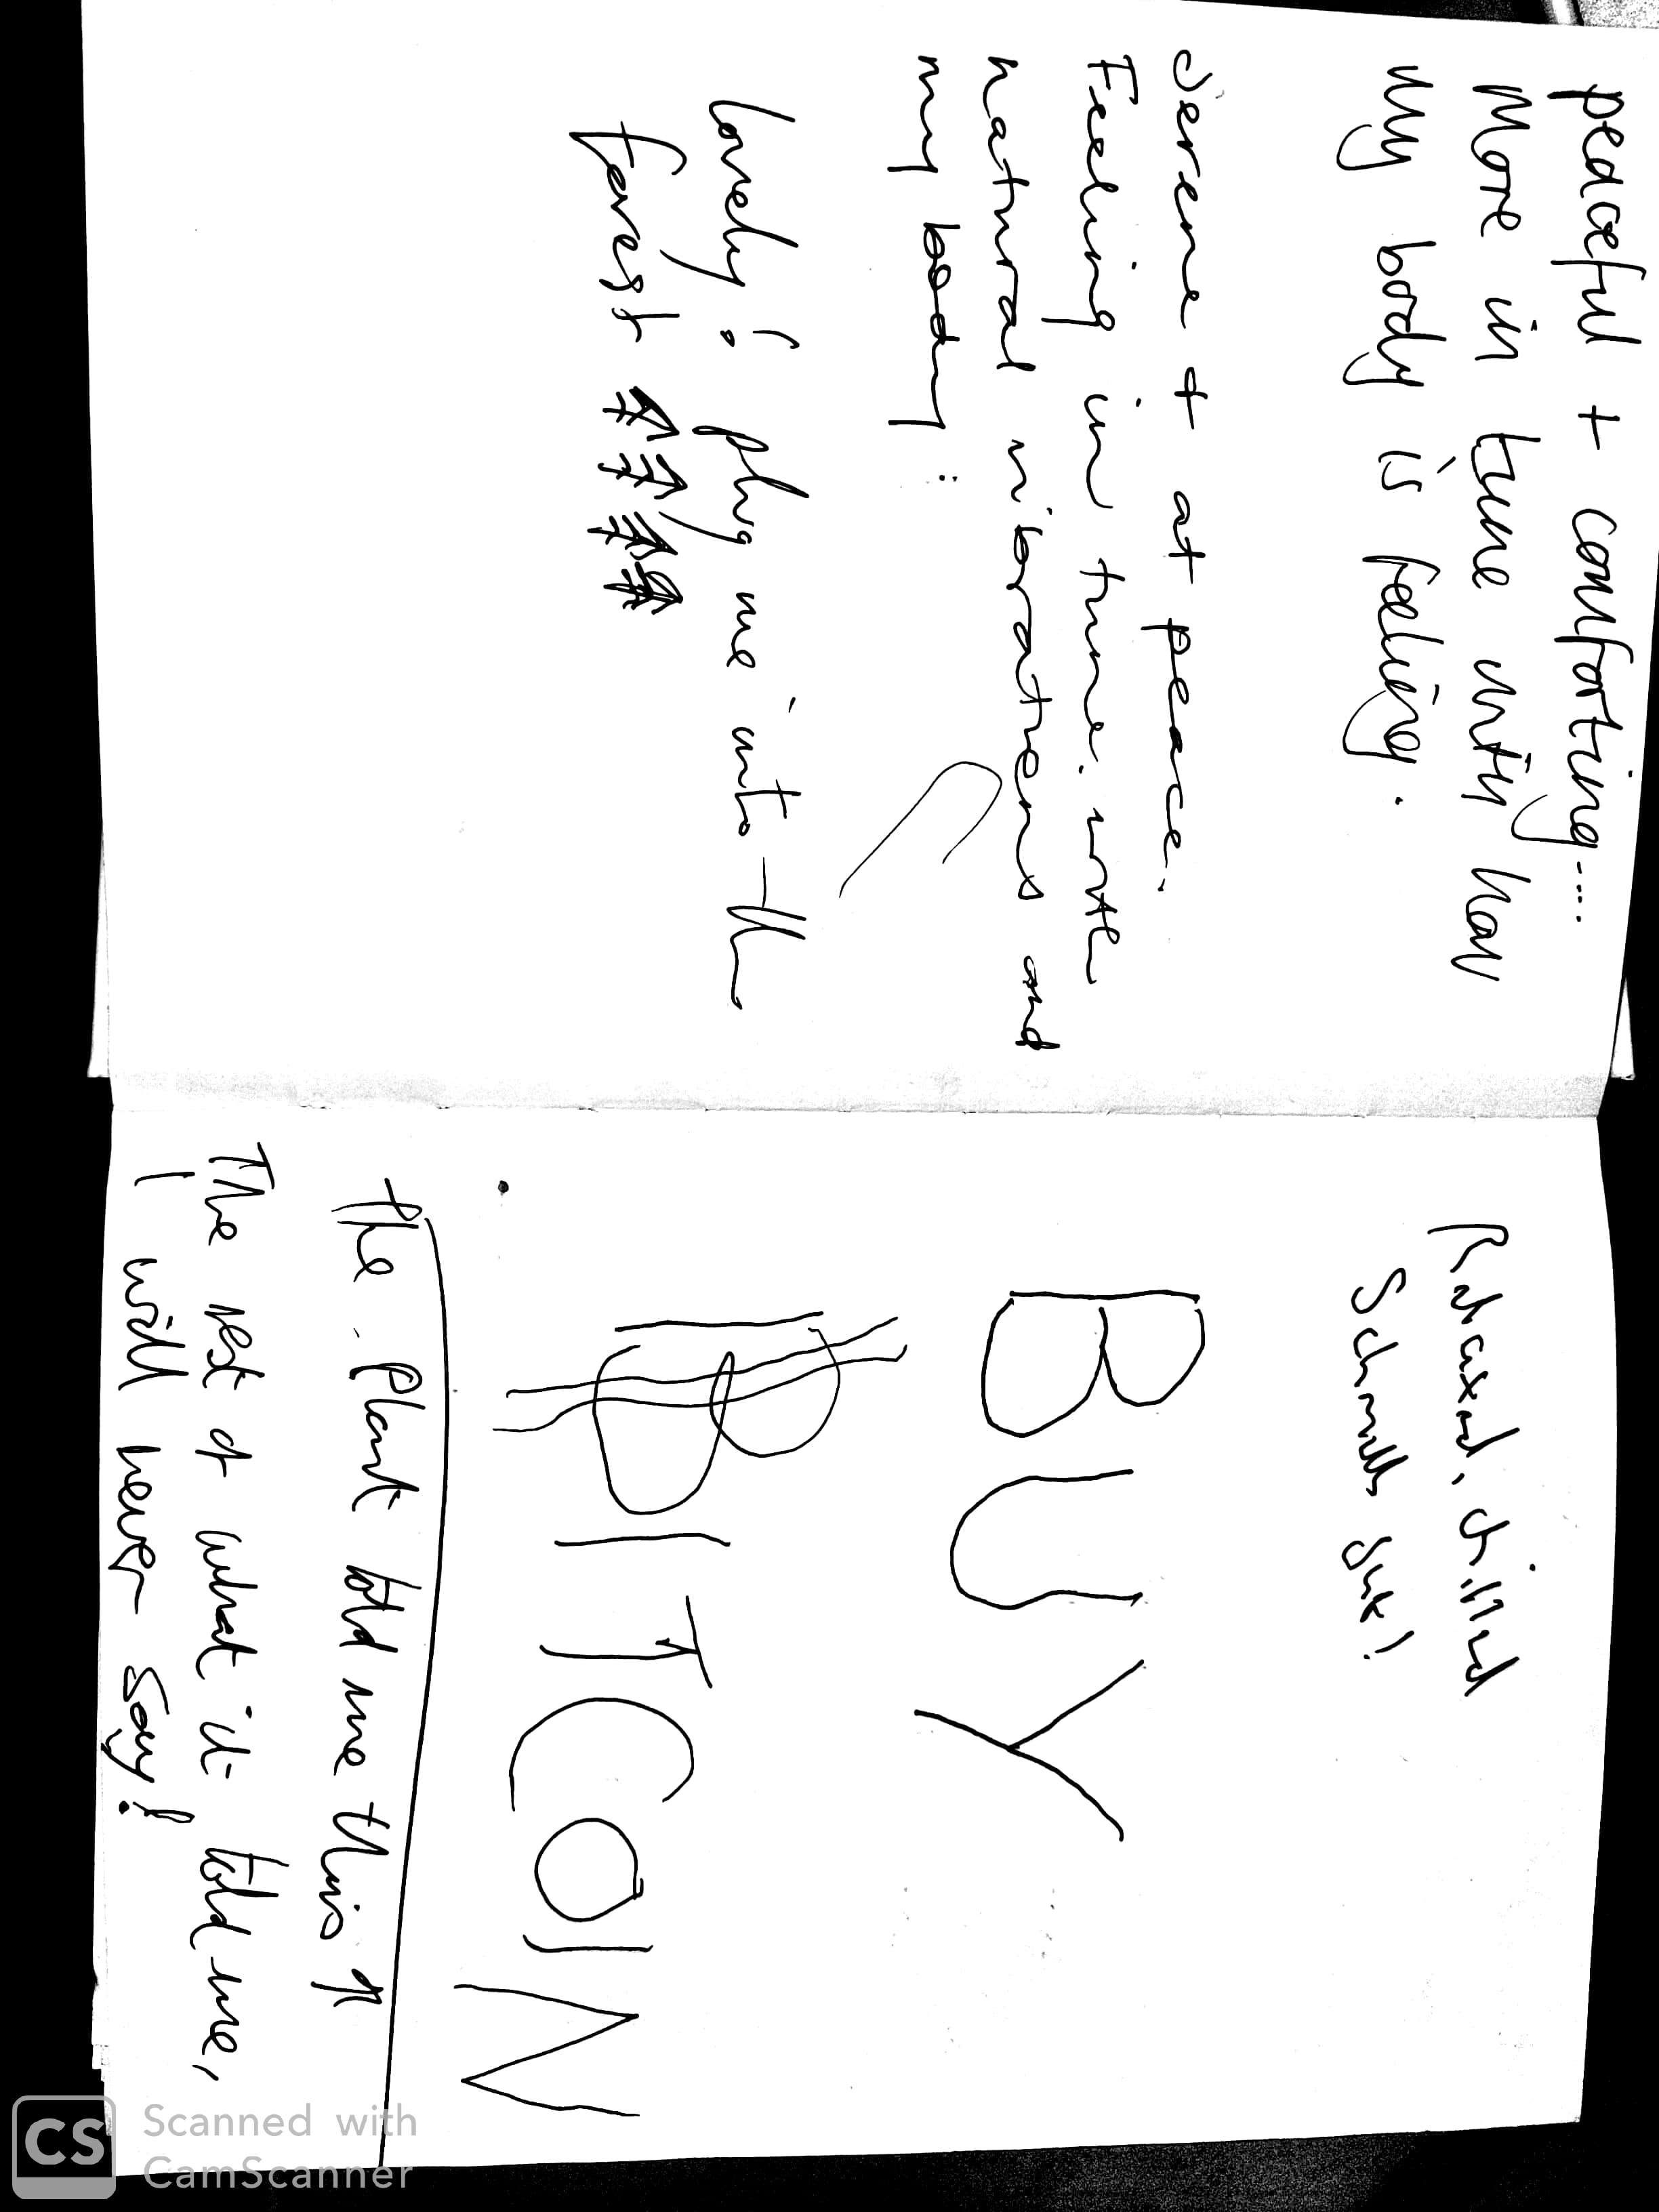 peaceful + comforting....
More in tune with how
my body is feeling.
Serene + at peace.
Feeling in tune with
natural vibrations and
my body
lovely! plug me into the
forest
Relaxed, chilled
BUY
BITCOIN
the plant told me this
The rest of what it told me,
I will never say!
CS
Scanned with
CamScanner